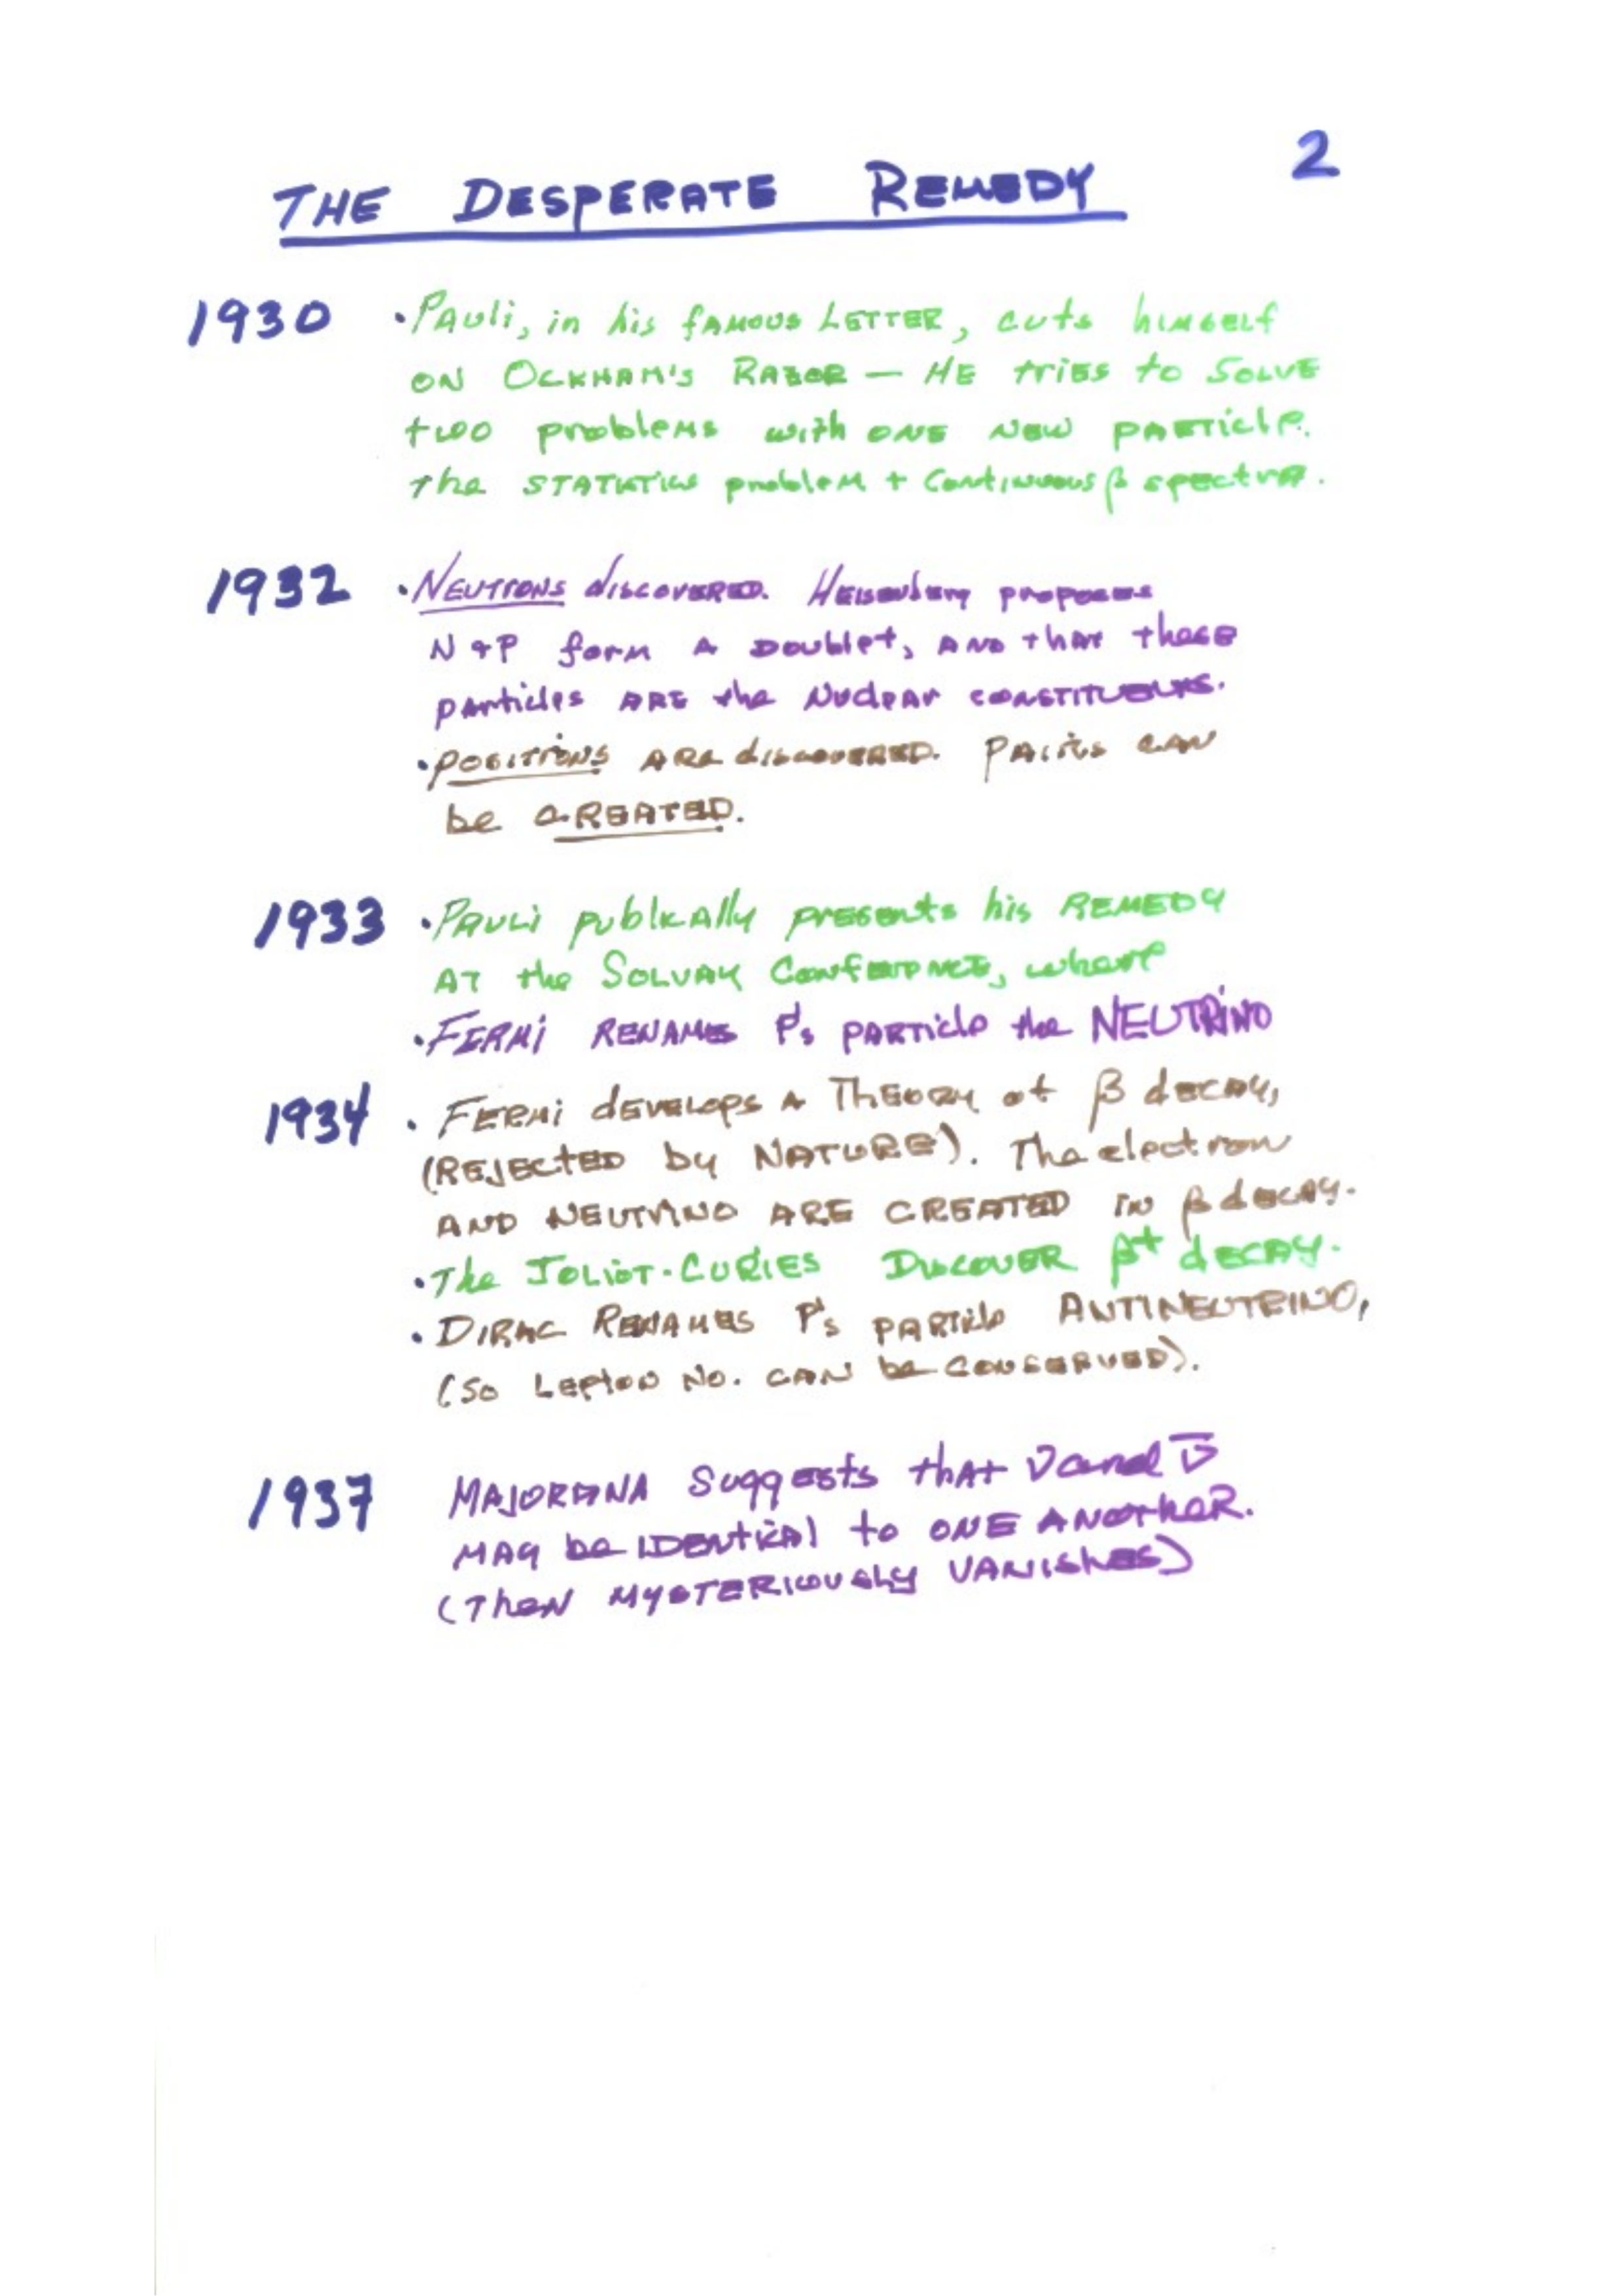 2
THE DESPERATE REMEDY
1930 • Pauli, in his famous LETTER, cuts himself
ON OCKHAM'S RAZOR — HE tries to SOLVE
two problems with ONE NEW PARTICLE.
The STATISTICS problem + Continuous β spectra.
1932 • NEUTRONS discovered. Heisenberg proposes
N & P form A Doublet, AND that these
particles ARE the Nuclear CONSTITUENTS.
• POSITRONS ARE discovered. PAIRS CAN
be CREATED.
1933 • PAULI publically presents his REMEDY
AT the SOLVAY Conference, where
• FERMI RENAMES P's PARTICLE the NEUTRINO
1934 • FERMI DEVELOPS A THEORY of β decay,
(REJECTED by NATURE). The electron
AND NEUTRINO ARE CREATED IN β decay.
• The JOLIOT-CURIES DISCOVER β+ decay.
• DIRAC RENAMES P's PARTICLE ANTINEUTRINO,
(SO LEPTON NO. CAN be CONSERVED).
1937 MAJORANA Suggests that ν and ν̄
MAY be IDENTICAL to ONE ANOTHER.
(THEN MYSTERIOUSLY VANISHES)